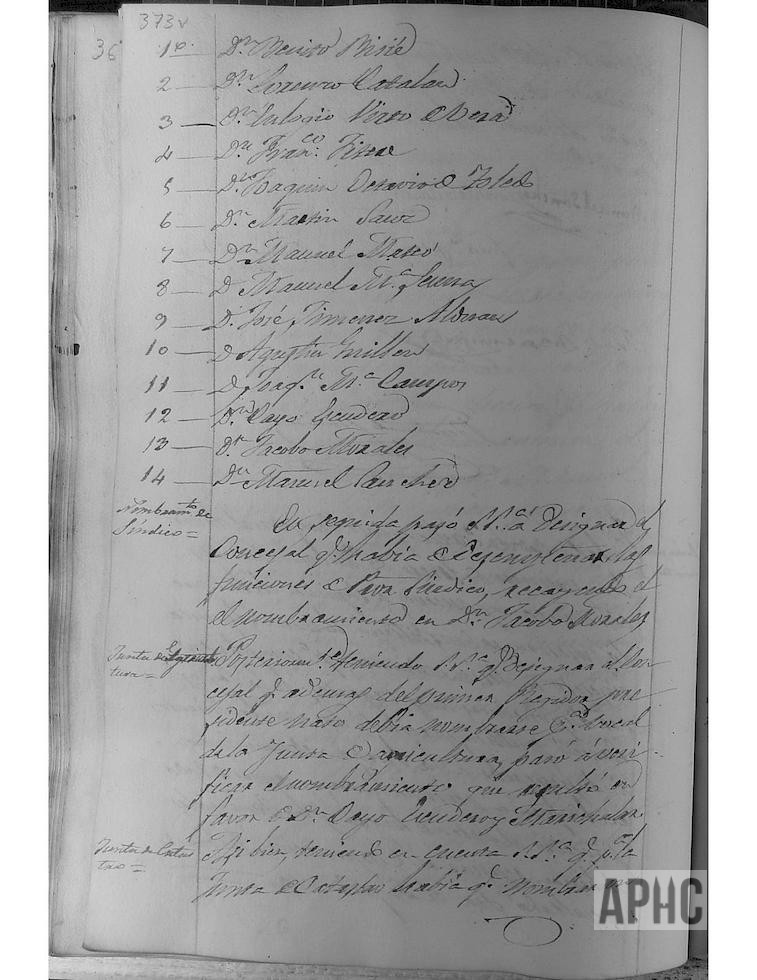 373v
36
1º — Dn Benito
2 — Dn Lorenzo Catalan
3 — Dn Antonio Perez de Vera
4 — Dn Franco.
5 — Dn Joaquin Octavio de Toledo
6 — Dn Martin Sanz
7 — Dn Manuel Mateo
8 — D Manuel Ma
9 — D. José Jimenez
10 — D Agustin Guillen
11 — D Joaqn Ma Campos
12 — Dn Dayo Escudero
13 — Dn Jacobo Morales
14 — Dn Manuel Sanchez
Nombramto de
Síndico =
En seguida pasó S. Sa á designar el
Concejal qe había de desempeñar las
funciones de Pror Síndico, recayendo
el nombramiento en Dn Jacobo Morales
Junta de Agricul
tura =
Posteriormte teniendo S. Sa qe designar al Con
cejal qe ademas del primer Regidor pre
sidente nato debia nombrarse pa vocal
de la Junta de Agricultura, pasó á veri-
ficar el nombramiento que resultó en
favor de Dn Dayo Escudero y Marichalar
Junta de Catas
tro =
Asi bien, teniendo en cuenta S. Sa qe pa la
Junta de Catastro había qe nombrar
APHC